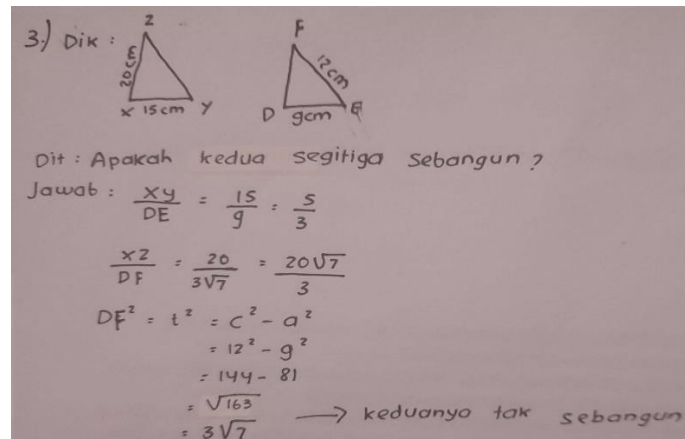 3.) Dik :
Z
20 cm
X 15 cm Y
F
12 cm
D 9cm E
Dit : Apakah kedua segitiga sebangun ?
Jawab : XY/DE = 15/9 = 5/3
XZ/DF = 20/3√7 = 20√7/3
DF² = t² = c² - a²
= 12² - 9²
= 144 - 81
= √163 → keduanya tak sebangun
= 3√7